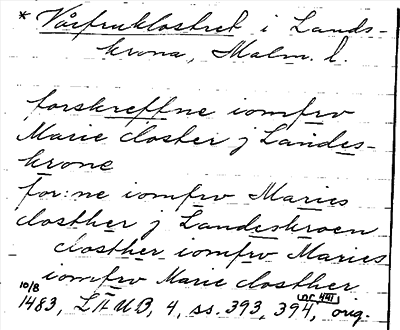 * Vårfruklostret i Lands-
krona, Malm. l.
forskreffne iomfrv
Marie closter j Landes-
krone
for:ne iomfrv Maries
closther j Landeskroen
closther iomfrv Maries
iomfrv Marie closther
10/8 nr 441
1483, LÄUB, 4, ss. 393, 394, orig.